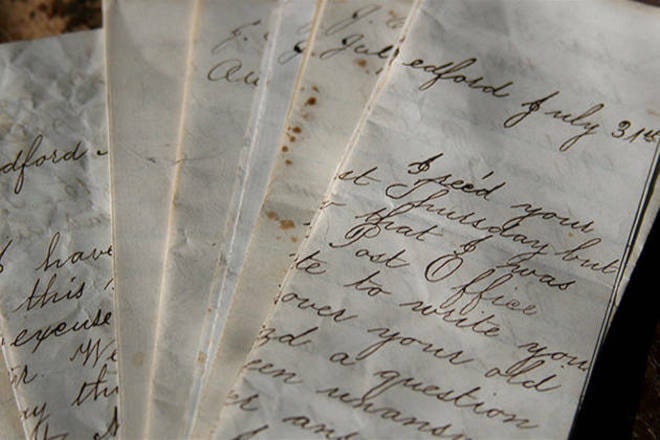 dford
I have
this
excuse
r. We
ay thi
J.
Au
J.
July
edford July 31st
I rec'd your
st Thursday but
that I was
Post Office
te to write you
over your old
zd a question
een unansw
er an